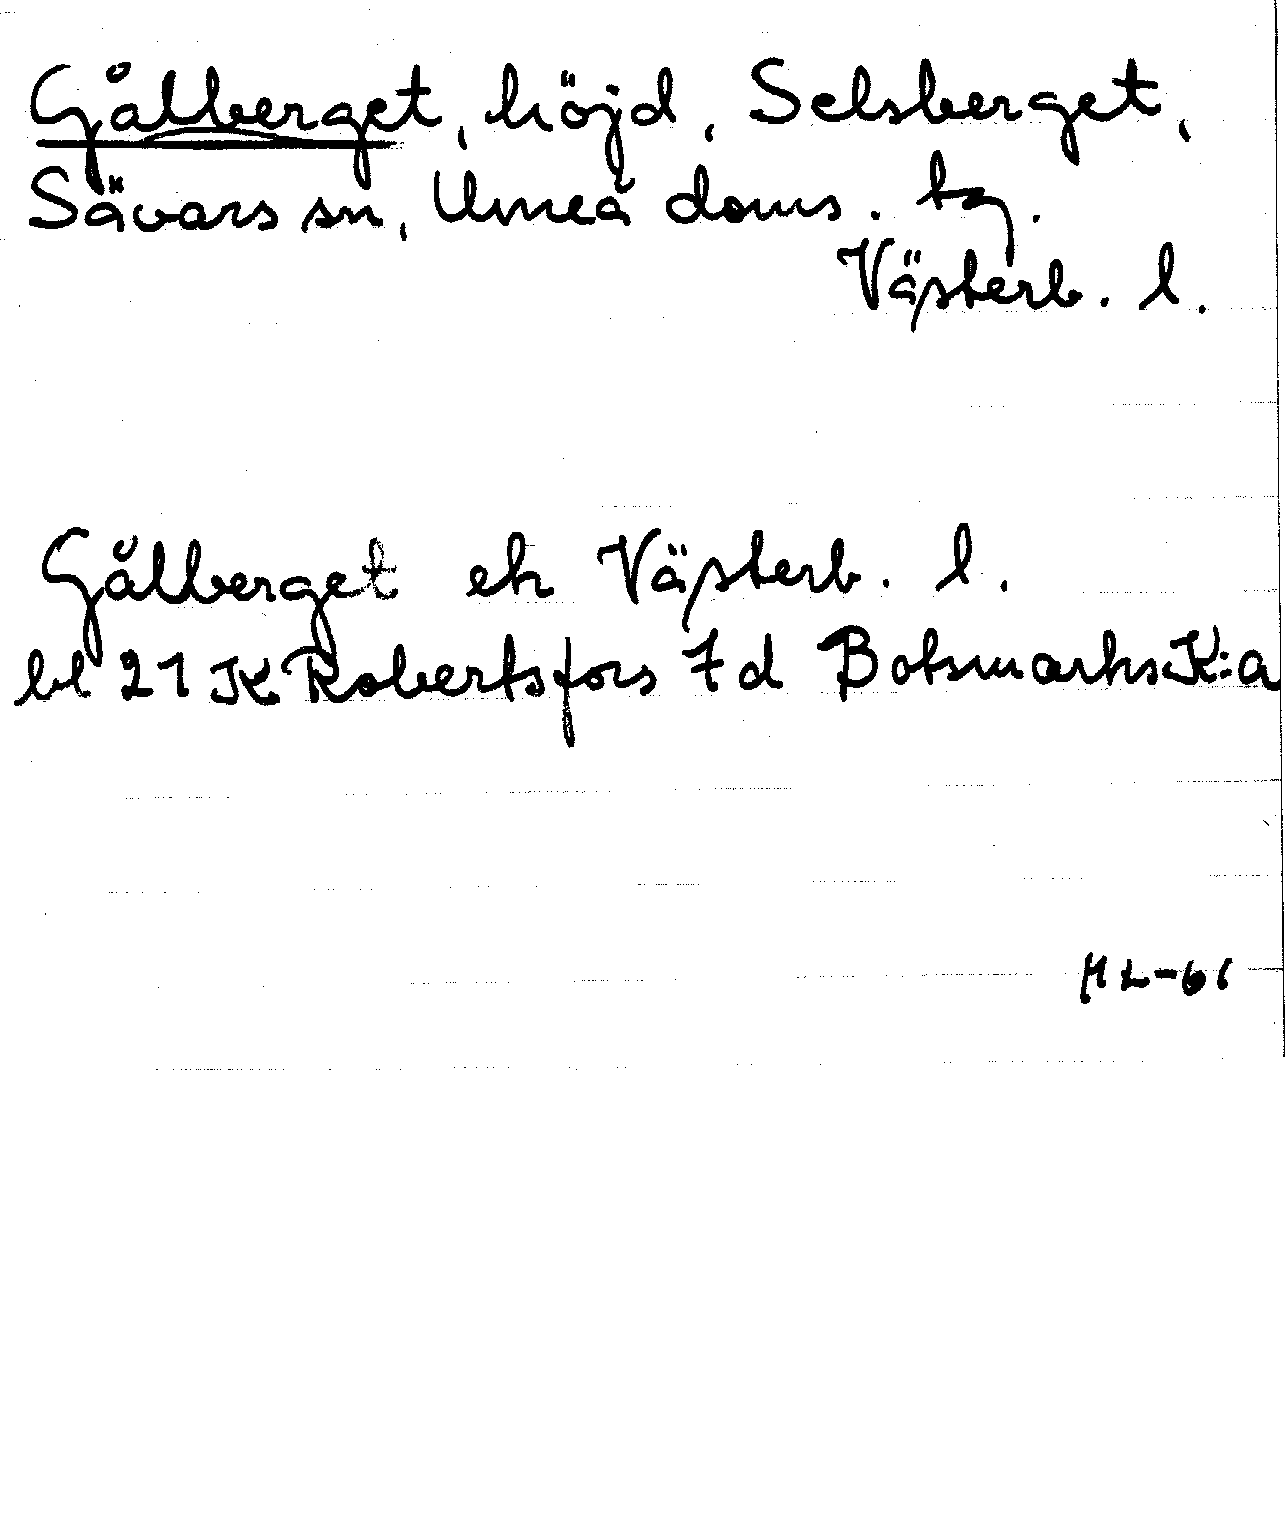 Gålberget, höjd, Selsberget,
Sävars sn, Umeå doms. tg.
Västerb. l.
Gålberget ek Västerb. l.
bl 21 K Robertsfors 7 d Botsmarks K:a
HL-61